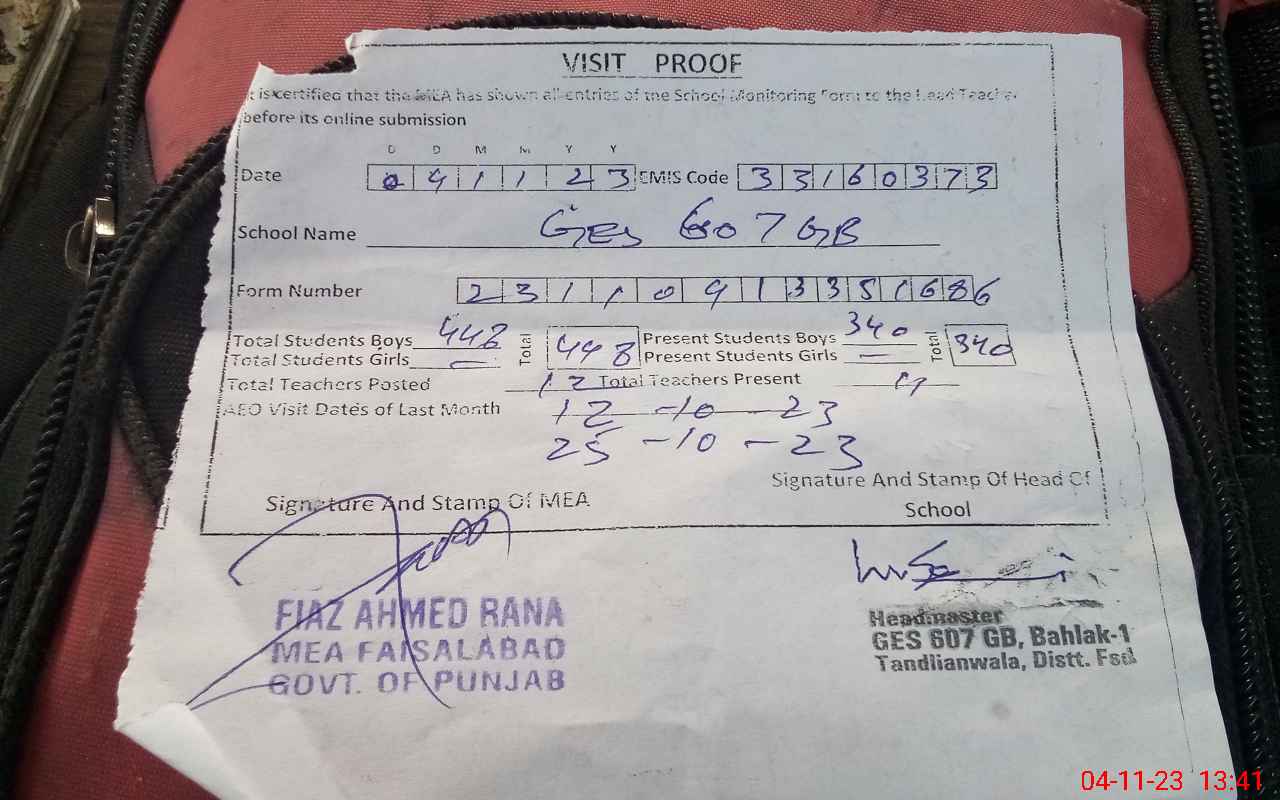 VISIT PROOF
It is certified that the MEA has shown all entries of the School Monitoring Form to the Lead Teacher
before its online submission
D D M M Y Y
Date 0 4 1 1 2 3 EMIS Code 3 3 1 6 0 3 7 3
School Name GES 607 GB
Form Number 2 3 1 1 0 4 1 3 3 5 1 6 8 6
Total Students Boys 448 Total 448 Present Students Boys 340 Total 340
Total Students Girls — Present Students Girls —
Total Teachers Posted 12 Total Teachers Present
AEO Visit Dates of Last Month 12 - 10 - 23
25 - 10 - 23
Signature And Stamp Of MEA
Signature And Stamp Of Head Of
School
FIAZ AHMED RANA
MEA FAISALABAD
GOVT. OF PUNJAB
Headmaster
GES 607 GB, Bahlak-1
Tandlianwala, Distt. Fsd
04-11-23 13:41